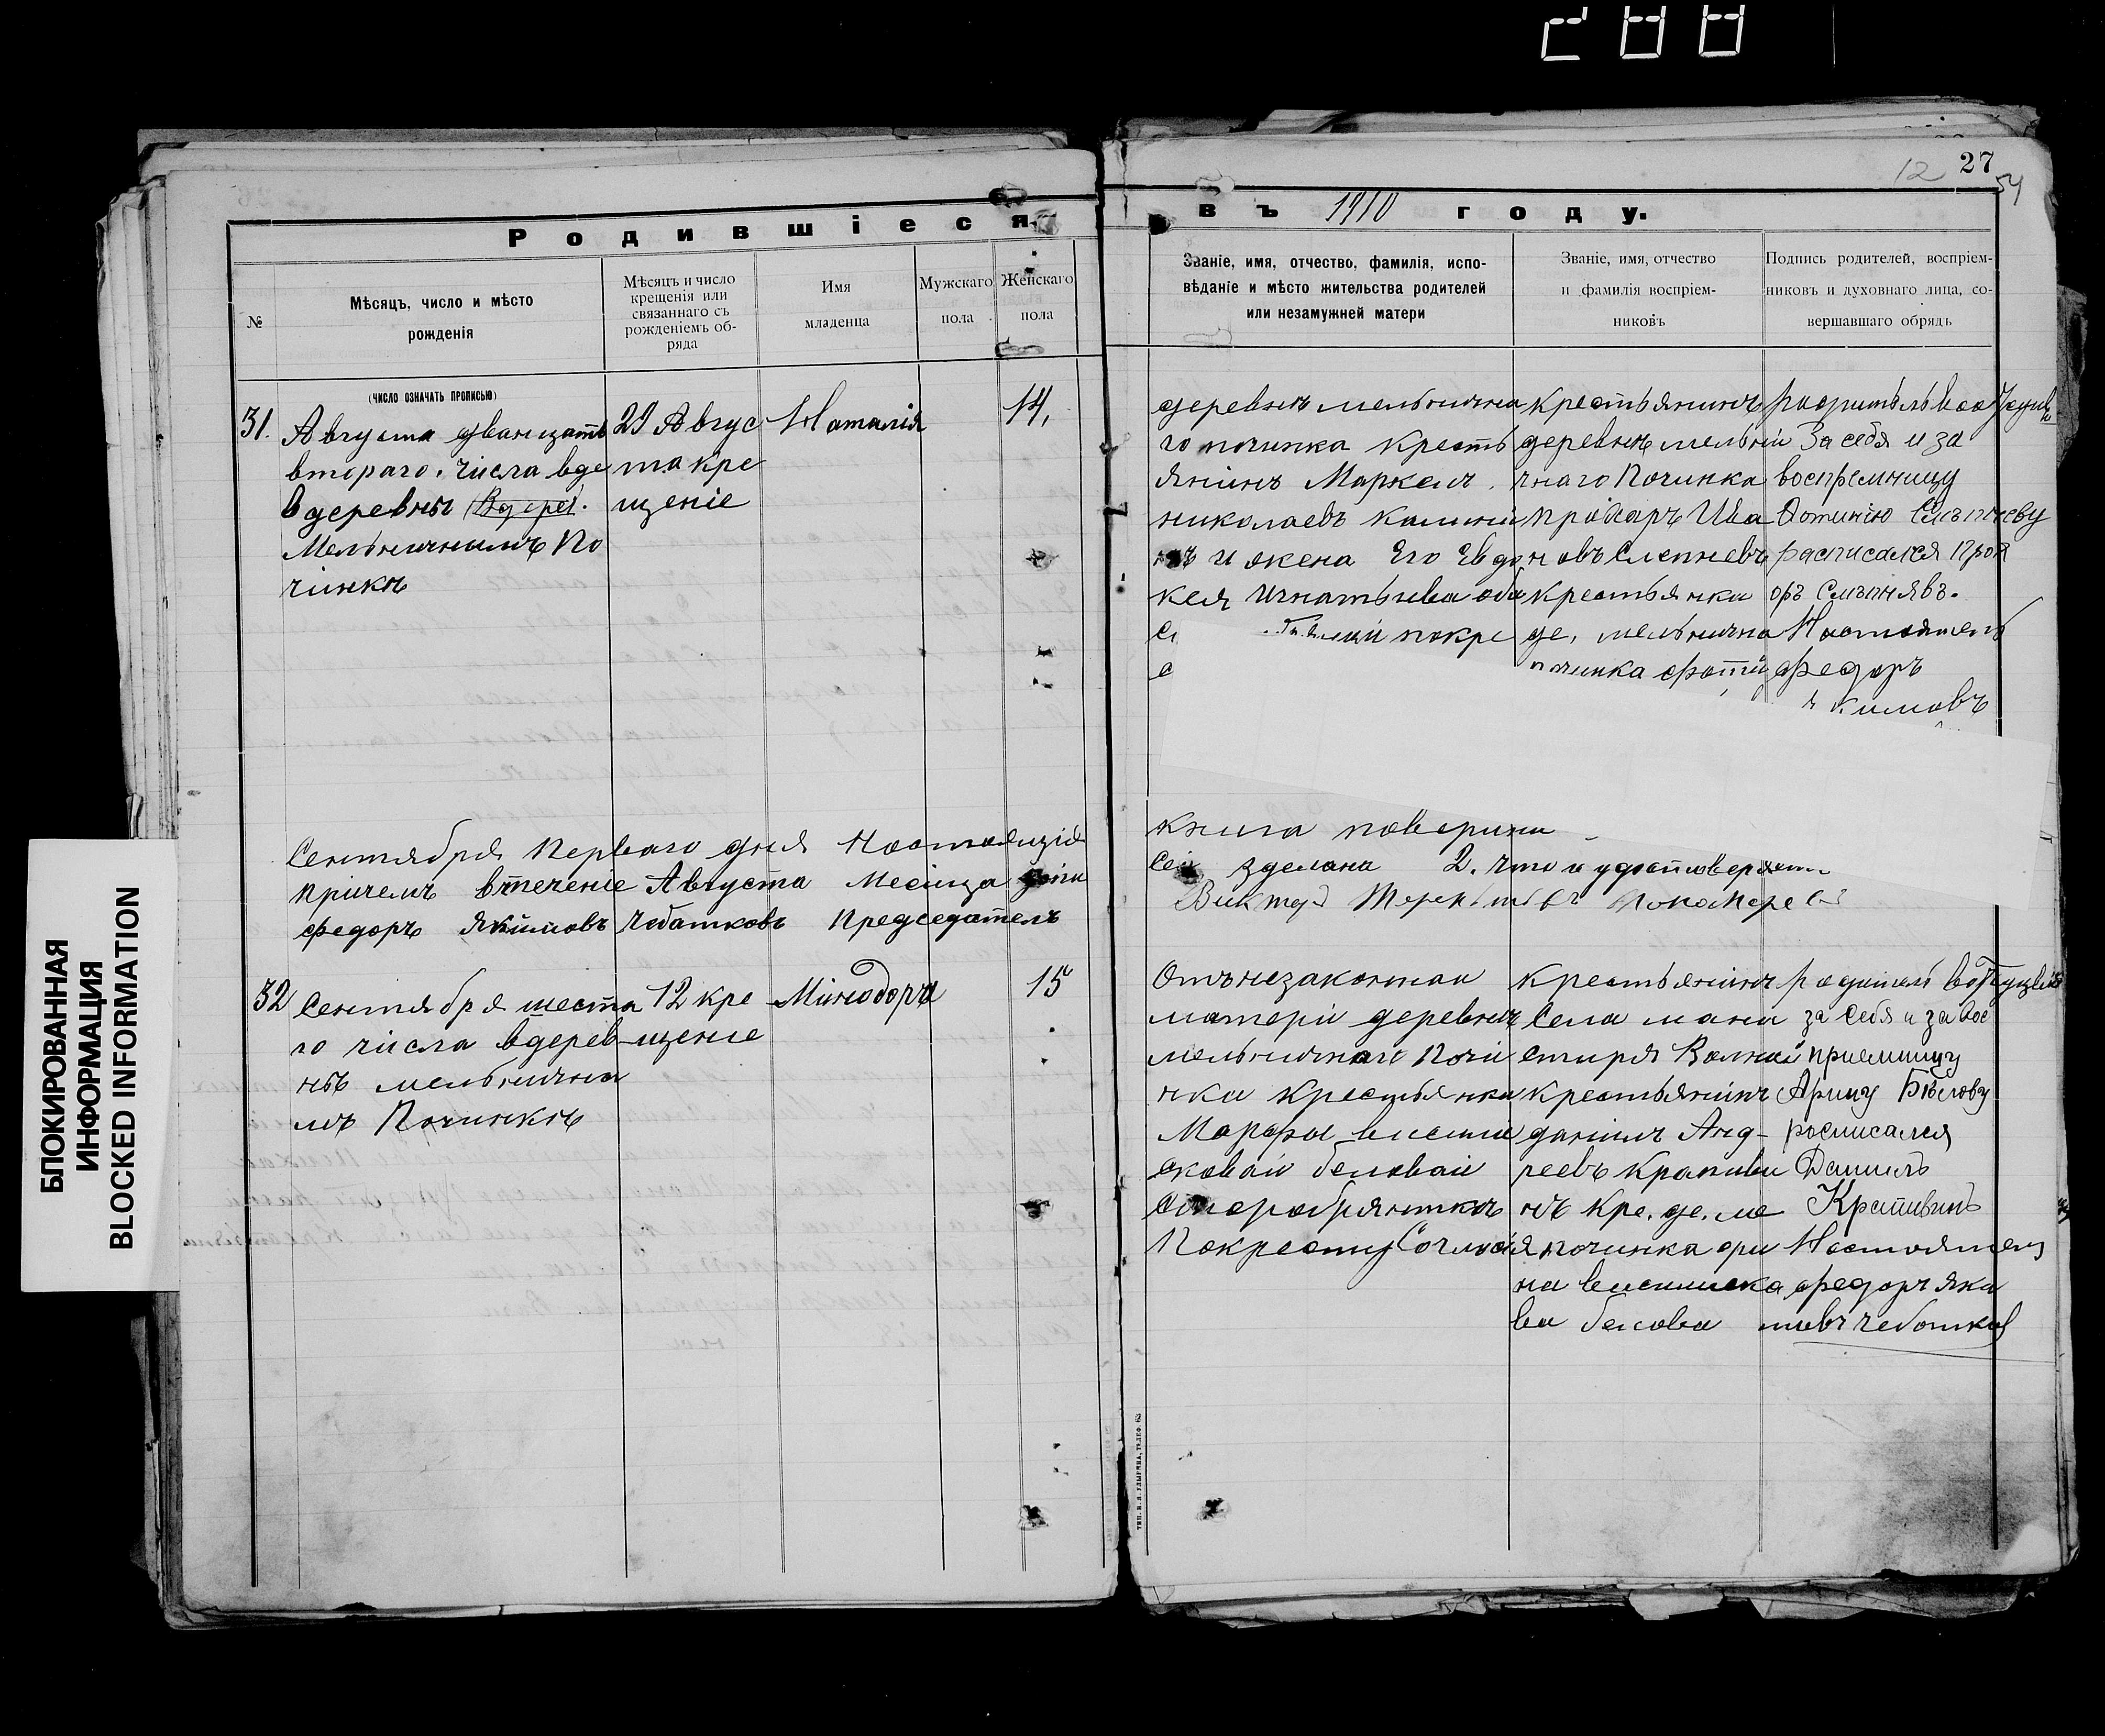 27
12
54
Родившіеся
въ 1910 году.
№
Мѣсяцъ, число и мѣсто
рожденія
Мѣсяцъ и число
крещенія или
связаннаго съ
рожденіемъ об-
ряда
Имя
младенца
Мужскаго
пола
Женскаго
пола
Званіе, имя, отчество, фамилія, испо-
вѣданіе и мѣсто жительства родителей
или незамужней матери
Званіе, имя, отчество
и фамилія воспріем-
никовъ
Подпись родителей, воспріем-
никовъ и духовнаго лица, со-
вершавшаго обрядъ
(число означать прописью)
31.
Августа двацать
втораго числа вде
вдеревнѣ
Мельничнымъ По
чинкѣ
29 Авгус
та кре
щеніе
Наталія
14,
деревнѣ мельнична
го починка кресть
янинъ Маркелъ
николаевъ
и жена Его Евдо
кея Игнатьева оба
покре
крестьянинъ
деревнѣ мельни
чнаго Починка
прокаръ Ива
новъ Слепневъ
крестьянка
де. мельнична
починка фоти
За себя и за
воспремницу
Фотинію
расписался Прох
оръ
Настоятель
федоръ
кимовъ
Сентября перваго дня Настоящія
причемъ втеченіе Августа Месяца
федоръ Якимовъ Чебатковъ Председатель
книга поверина
зделана 2. что и удостоверяет
Виктор
32
Сентября шеста
го числа вдерев
нѣ мельнична
мъ Починкѣ
12 кре
щеніе
Минодора
15
Отъ незаконная
матери деревнѣ
мельничнаго Почи
нка крестьянка
Марфы
беловай
Старобрянткъ
Покресту Согласія
крестьянинъ
Села мана
стиря
крестьянинъ
данилъ Анд-
реевъ крапиви
нъ кре. де. ме
починка ори
на
ва белова
за Себя и за Вос
приемницу
Арину Бѣлову
росписался
Данилъ
Крапивинъ
Настоятел
федоръ Яки
мовъ чеботков
БЛОКИРОВАННАЯ
ИНФОРМАЦИЯ
BLOCKED INFORMATION